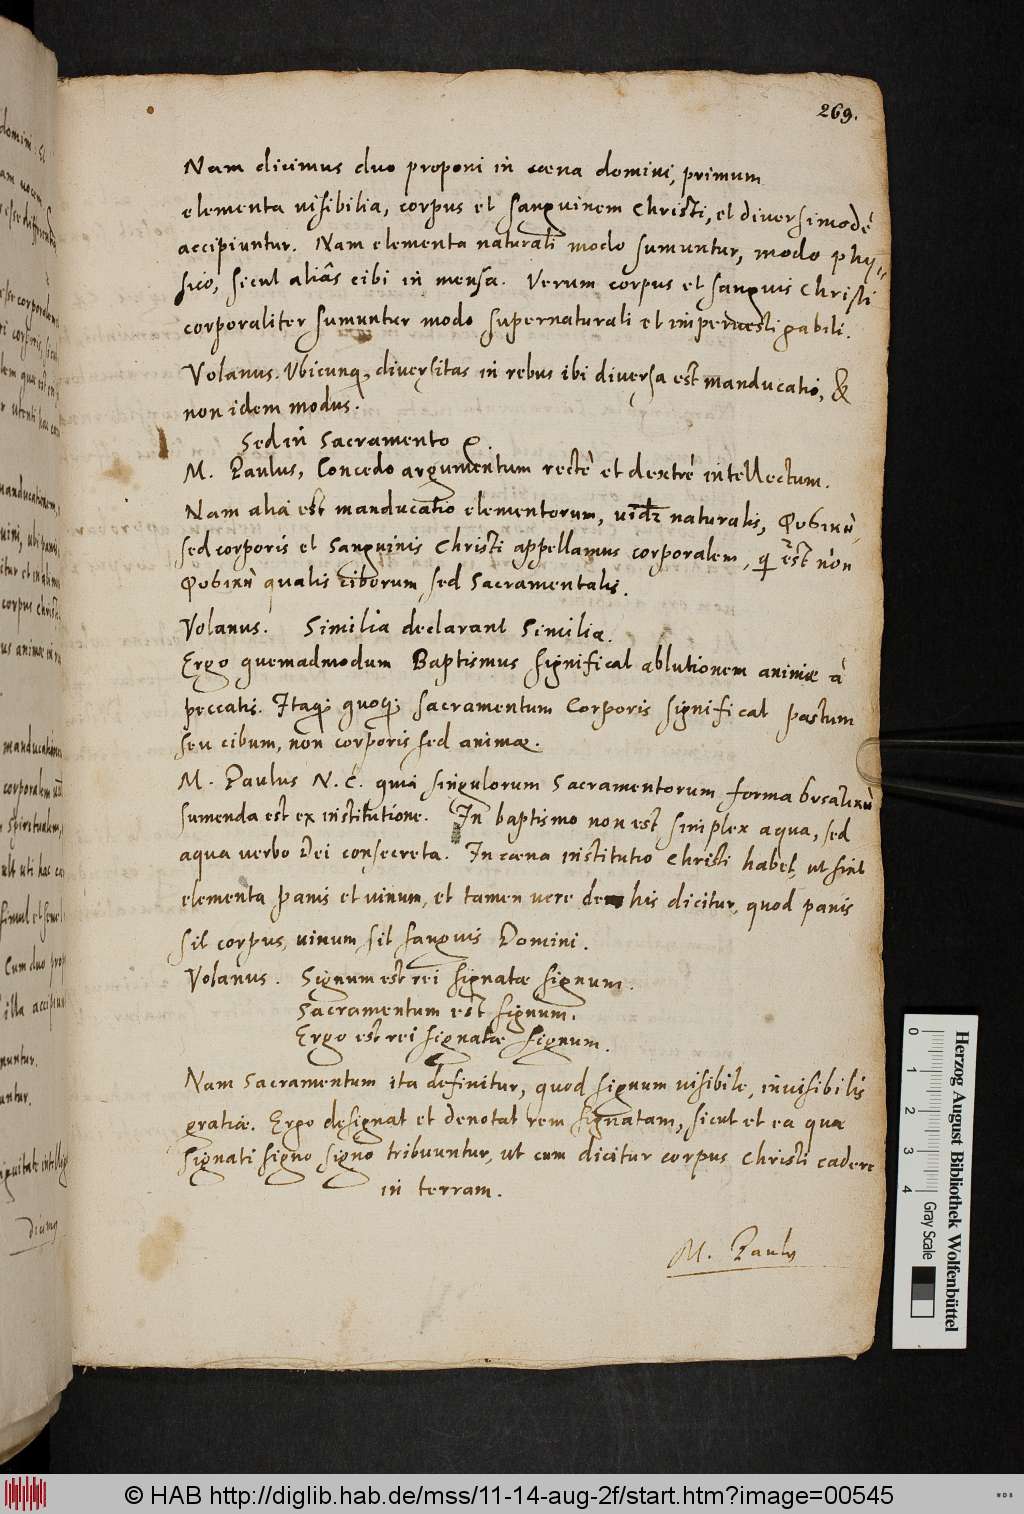 269.
Nam dicimus duo proponi in cœna domini, primum
elementa uisibilia, corpus et sanguinem Christi, et diversimodè
accipiuntur. Nam elementa naturali modo sumuntur, modo phy=
sico, sicut aliâs cibi in mensa. Verum corpus et sanguis Christi
corporaliter sumuntur modo supernaturali et imperuestigabili.
Volanus. Ubicunq, diuersitas in rebus ibi diuersa est manducatio, &
non idem modus.
Sed in Sacramento
M. Paulus, Concedo argumentum rectè et dextrè intellectum.
Nam alia est manducatio elementorum, uidz naturalis,
sed corporis et sanguinis Christi appellamus corporalem, q est non
qualis ciborum, sed Sacramentalis.
Volanus. Similia declarant Similia.
Ergo quemadmodum Baptismus significat ablutionem animæ à
peccatis. Itaq quoq sacramentum Corporis significat pastum
seu cibum, non corporis sed animæ.
M. Paulus N. C. quia singulorum Sacramentorum forma
sumenda est ex institutione. In baptismo non est simplex aqua, sed
aqua verbo Dei consecreta. In cœna institutio Christi habet, ut sint
elementa panis et uinum, et tamen vere de his dicitur, quod panis
sit corpus, uinum sit sanguis Domini.
Volanus. Signum est rei signatæ signum.
Sacramentum est signum.
Ergo est rei signatæ signum.
Nam Sacramentum ita definitur, quod signum uisibile, inuisibilis
gratiæ. Ergo designat et denotat rem signatam, sicut et ea quæ
signati signo signo tribuuntur, ut cum dicitur corpus Christi cadere
in terram.
M. Paulus
Herzog August Bibliothek Wolfenbüttel
0 1 2 3 4
Gray Scale
© HAB http://diglib.hab.de/mss/11-14-aug-2f/start.htm?image=00545